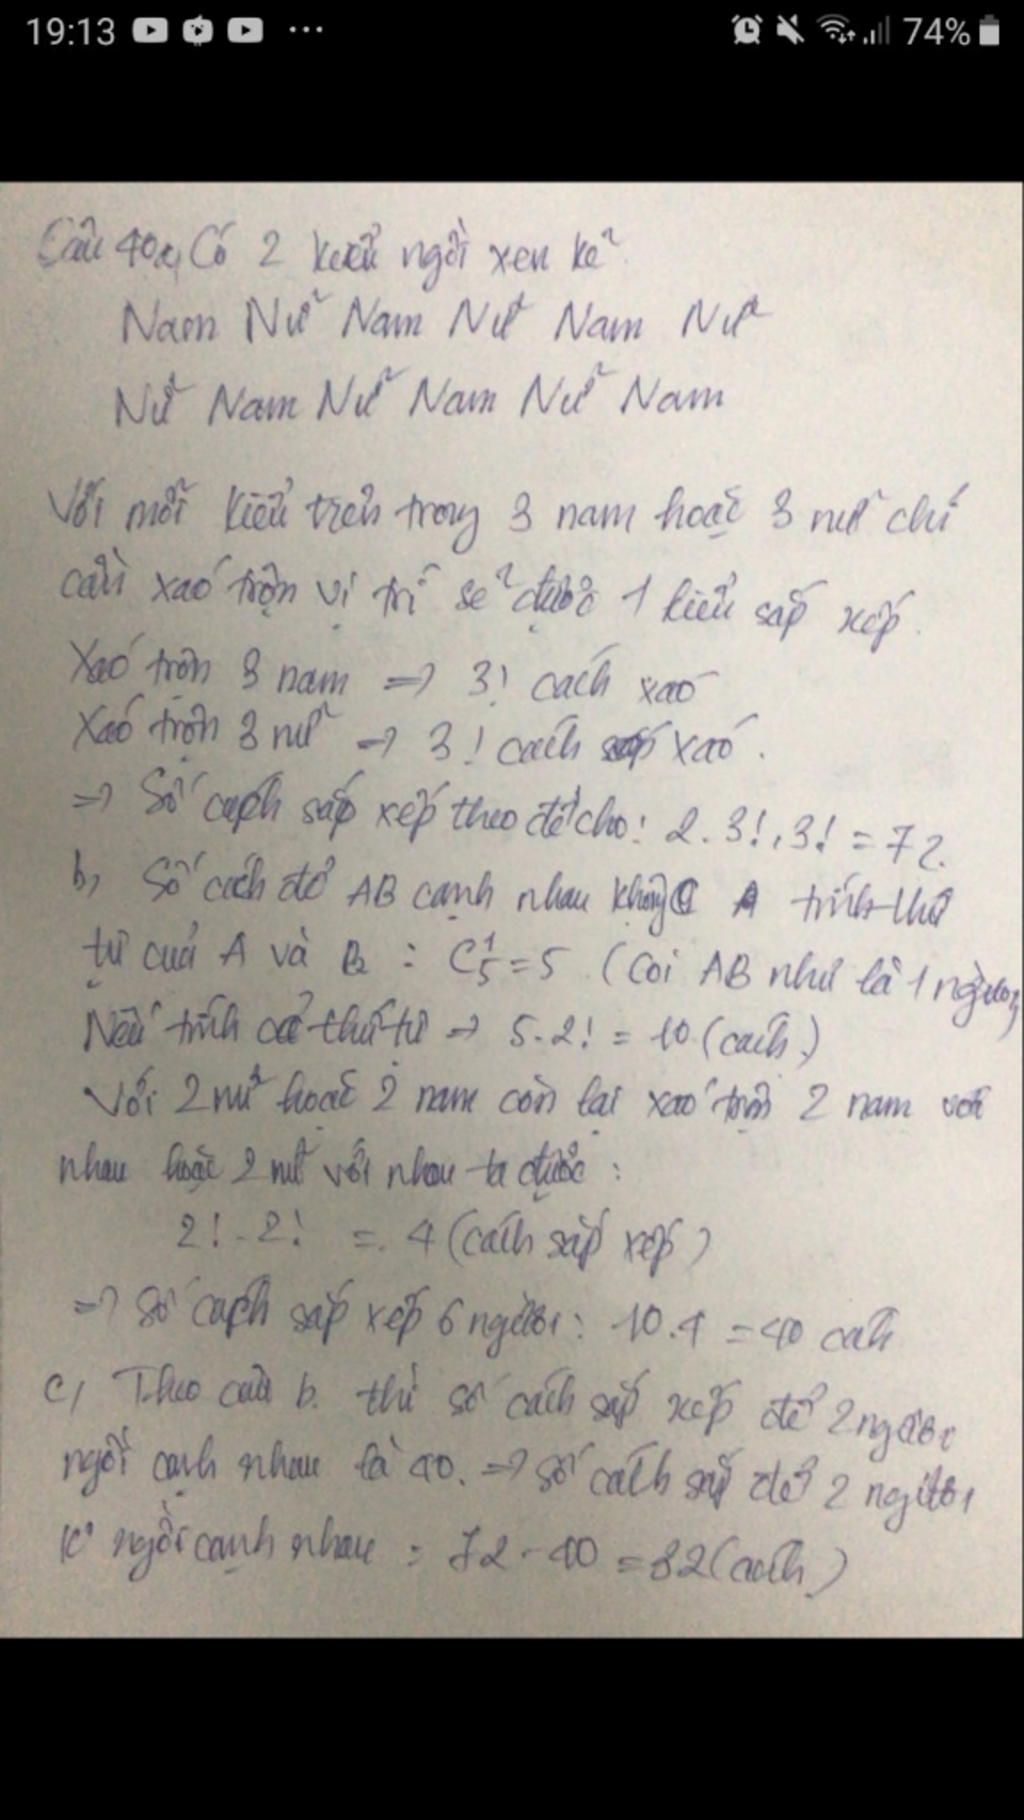 19:13 ... 74%
Câu 40a, Có 2 kiểu ngồi xen kẽ
Nam Nữ Nam Nữ Nam Nữ
Nữ Nam Nữ Nam Nữ Nam
Với mỗi kiểu trên trong 3 nam hoặc 3 nữ chỉ
cần xáo trộn vị trí sẽ được 1 kiểu sắp xếp.
Xáo trộn 3 nam => 3! cách xáo
Xáo trộn 3 nữ => 3! cách xáo.
=> Số cách sắp xếp theo đề cho: 2.3!.3! = 72.
b, Số cách để AB cạnh nhau không tính thứ
tự của A và B : C¹₅ = 5 (Coi AB như là 1 người)
Nếu tính cả thứ tự => 5.2! = 10 (cách)
Với 2 nữ hoặc 2 nam còn lại xáo trộn 2 nam với
nhau hoặc 2 nữ với nhau ta được :
2! . 2! = 4 (cách sắp xếp)
=> Số cách sắp xếp 6 người: 10.4 = 40 cách
c, Theo câu b. thì số cách sắp xếp để 2 người
ngồi cạnh nhau là 40. => số cách sắp để 2 người
k° ngồi cạnh nhau = 72 - 40 = 32 (cách)